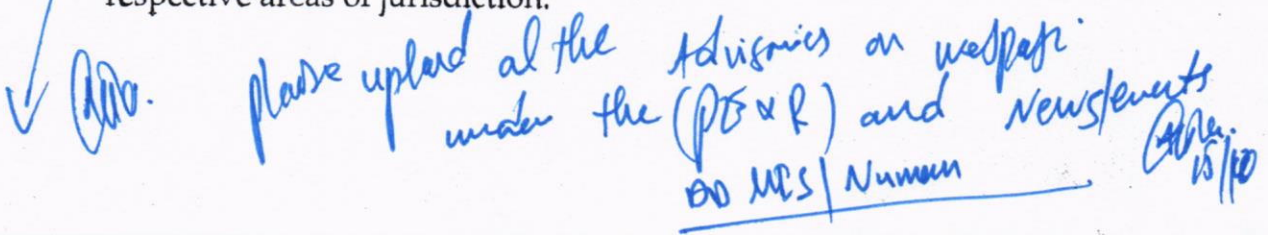 respective areas of jurisdiction.
please upload al the Advisories on webpage
under the (PE & R) and News/events
AD MIS/Numan
15/10